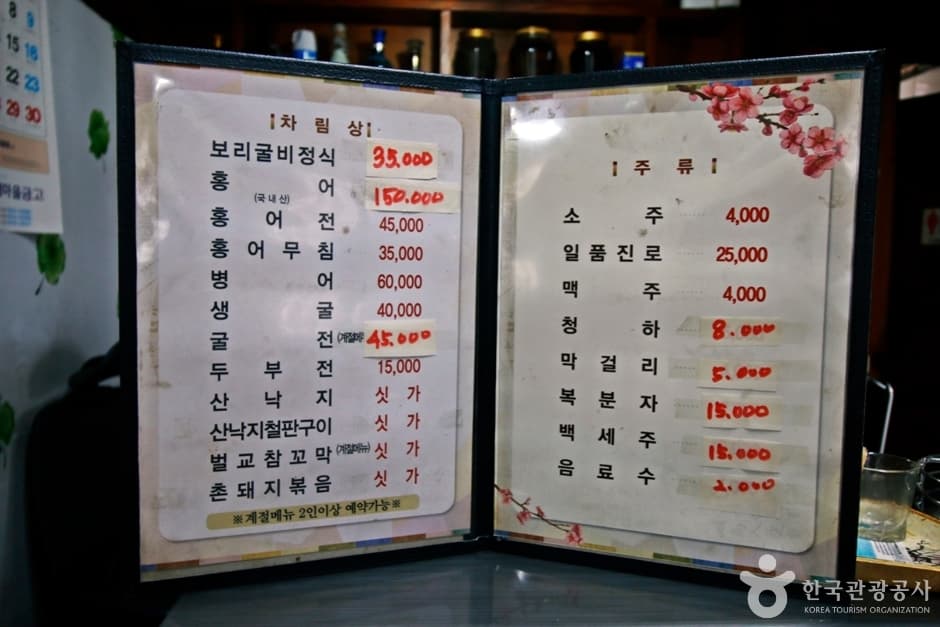 8 9
15 16
22 23
29 30
마을금고
차림상
보리굴비정식 35.000
홍어 150.000
(국내산)
홍어전 45,000
홍어무침 35,000
병어 60,000
생굴 40,000
굴전 (계절메뉴 45.000
두부전 15,000
산낙지 싯가
산낙지철판구이 싯가
벌교참꼬막 (계절메뉴) 싯가
촌돼지볶음 싯가
※계절메뉴 2인이상 예약가능※
주류
소주 4,000
일품진로 25,000
맥주 4,000
청하 8.000
막걸리 5.000
복분자 15.000
백세주 15.000
음료수 2.000
한국관광공사
KOREA TOURISM ORGANIZATION